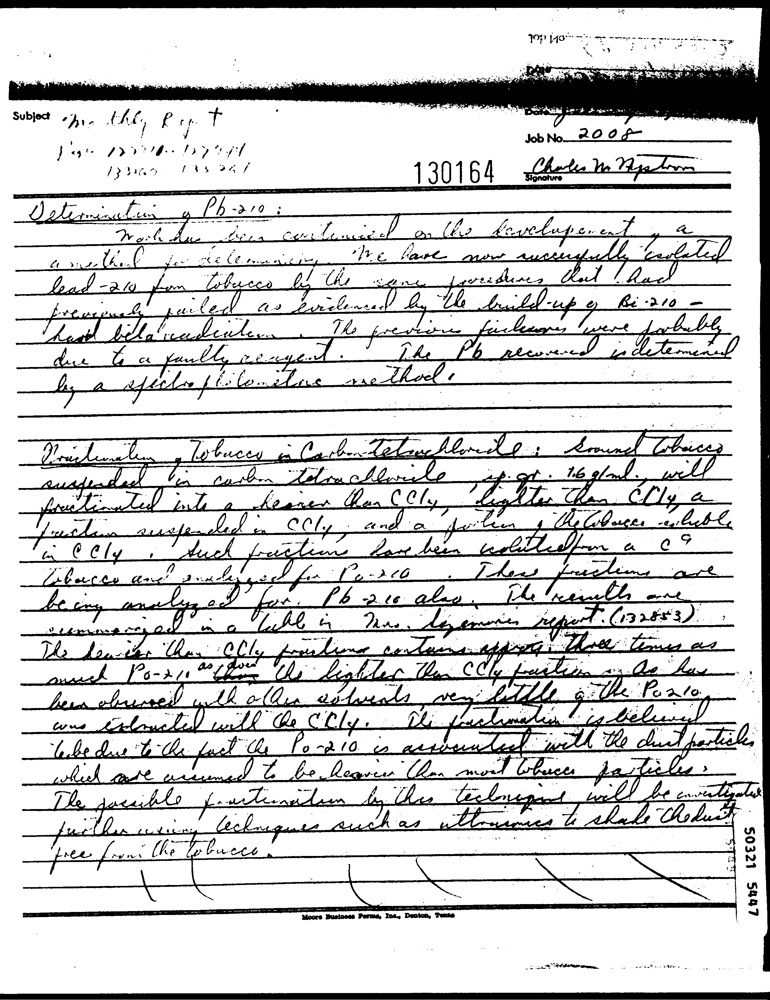 Job No.
Date
Subject Monthly Report
Date
Job No. 2008
130164 Charles M Nystrom
Signature
Determination of Pb-210:
Work has been continued on the development of a
a method for determining. We have now successfully isolated
lead-210 from tobacco by the same procedures that had
previously failed as evidenced by the build-up of Bi-210 -
hard beta radiation. The previous failures were probably
due to a faulty reagent. The Pb recovered is determined
by a spectrophotometric method.
Fractionation of Tobacco in Carbon Tetrachloride: Ground tobacco
suspended in carbon tetrachloride, sp. gr. 1.6 g/ml. will
fractionated into a heavier than CCl4, lighter than CCl4, a
fraction suspended in CCl4, and a portion of the tobacco soluble
in CCl4. Such fractions have been isolated from a C9
tobacco and analyzed for Po-210. These fractions are
being analyzed for Pb-210 also. The results are
summarized in a table in Mrs. report. (132853)
The heavier than CCl4 fractions contains approx. three times as
much Po-210 as does the lighter than CCl4 fraction. As has
been observed with other solvents, very little of the Po210
was extracted with the CCl4. The fractionation is believed
to be due to the fact the Po-210 is associated with the dust particles
which are assumed to be heavier than most tobacco particles.
The possible fractionation by this technique will be investigated
further using techniques such as ultrasonics to shake the dust
free from the tobacco.
Moore Business Forms, Inc., Denton, Texas
50321 5447